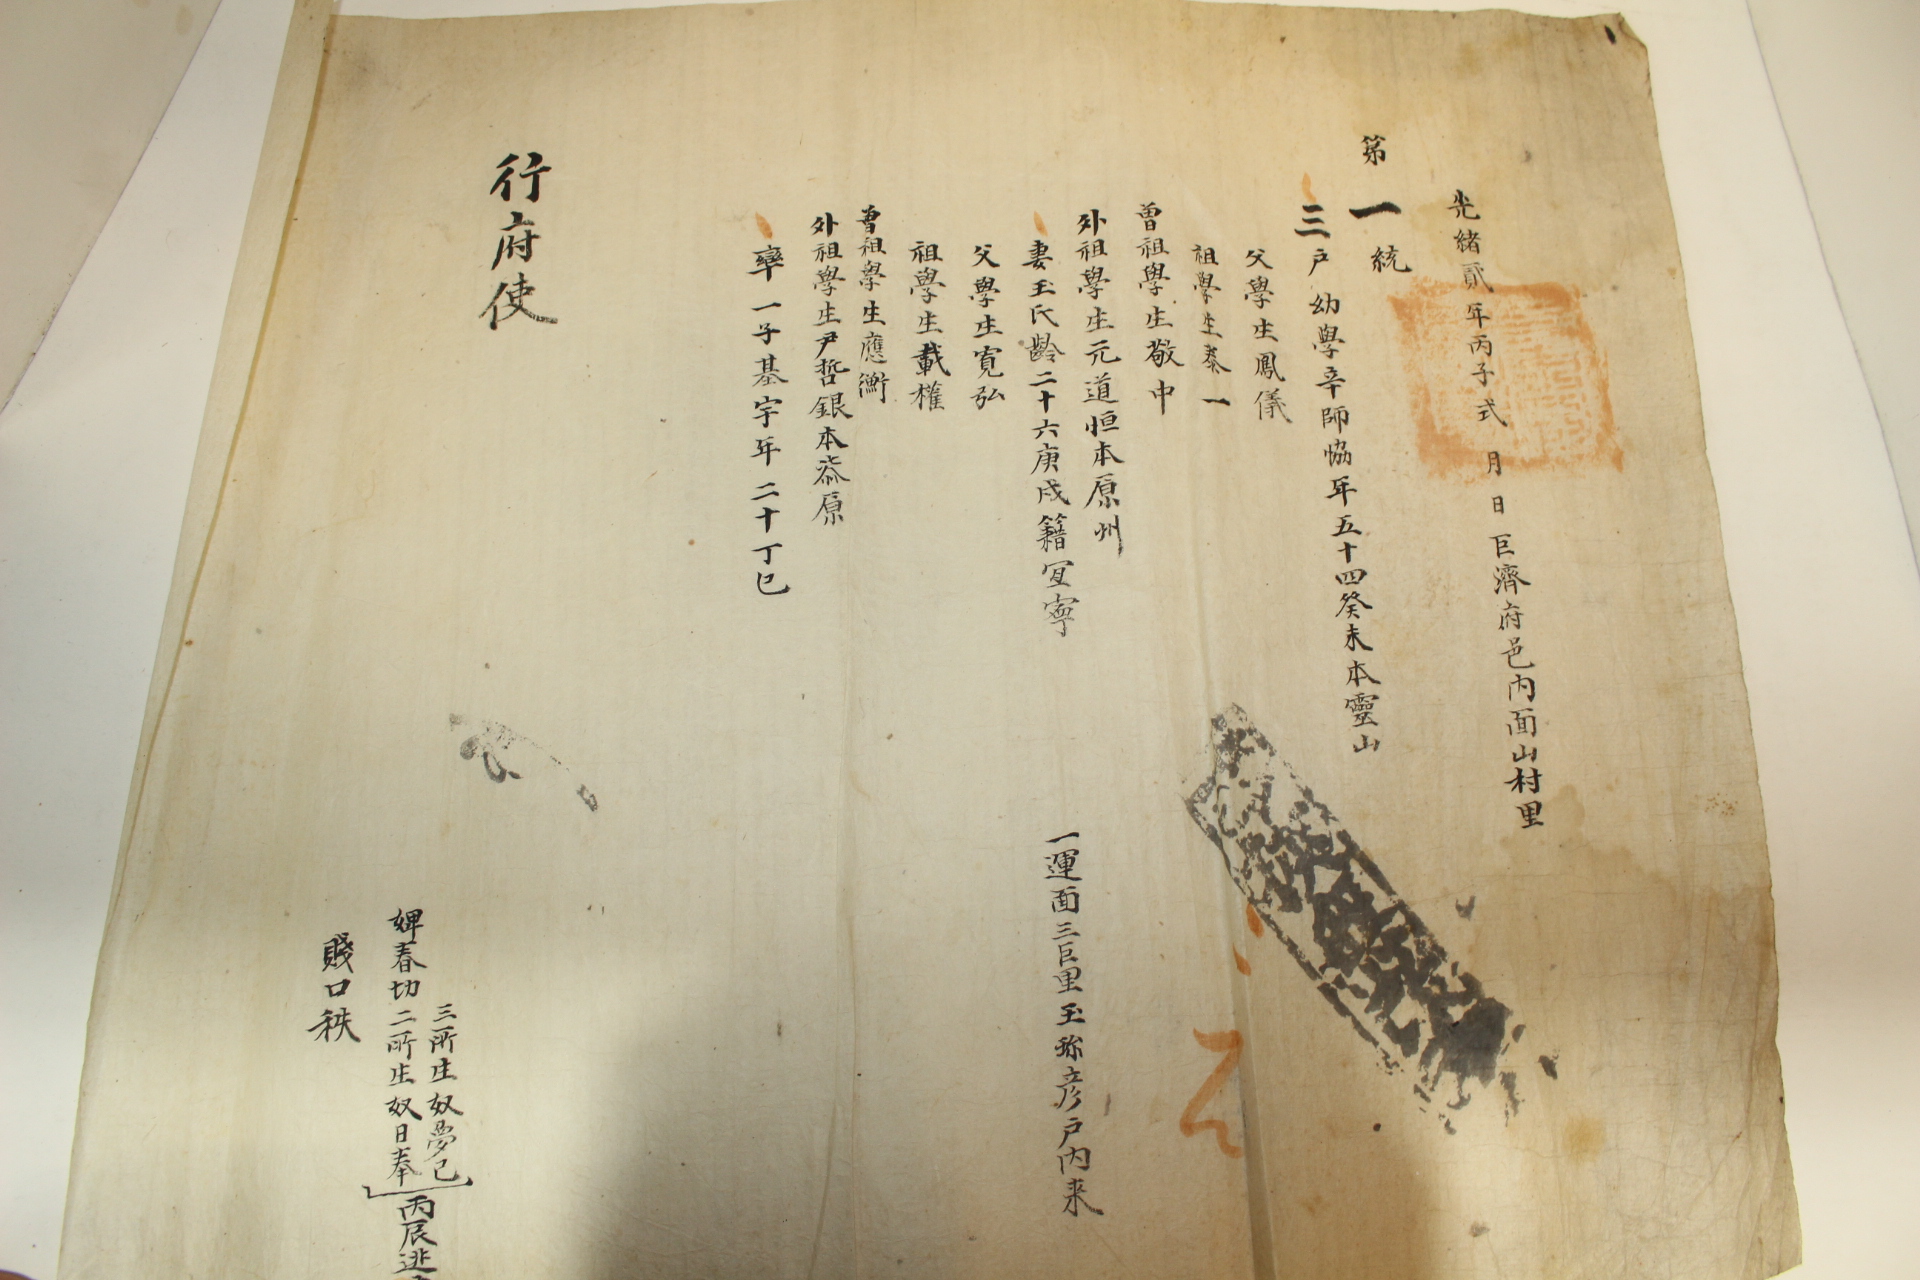 光緒貳年丙子式 月 日巨濟府邑內面山村里
第一統
三戶幼學辛師恊年五十四癸未本靈山
父學生鳳儀
祖學生泰一
曾祖學生敬中
外祖學生元道恒本原州
妻玉氏齡二十六庚戌籍冝寧
一運面三巨里玉珎彦戶內来
父學生寬弘
祖學生載權
曾祖學生應衡
外祖學生尹哲銀本柒原
率一子基宇年二十丁巳
行府使
三所生奴夢己
婢春切二所生奴日奉
丙辰逃
賤口秩